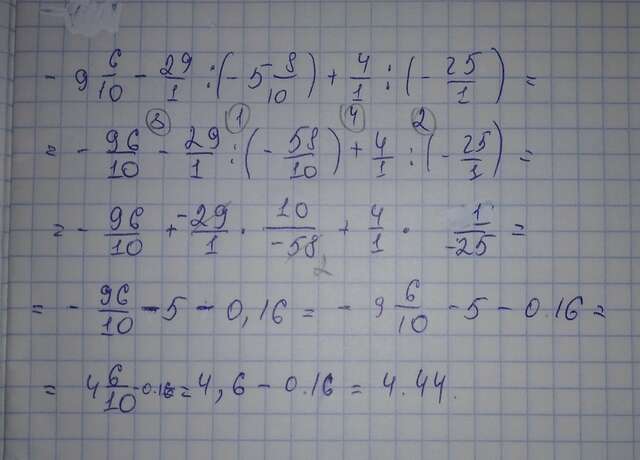 - 9 6/10 - 29/1 : (- 5 8/10) + 4/1 : (- 25/1) =
3 1 4 2
= - 96/10 - 29/1 : (- 58/10) + 4/1 : (- 25/1) =
= - 96/10 + -29/1 · 10/-58 + 4/1 · 1/-25 =
2
= - 96/10 - 5 - 0,16 = - 9 6/10 - 5 - 0.16 =
= 4 6/10 - 0.16 = 4,6 - 0.16 = 4.44.